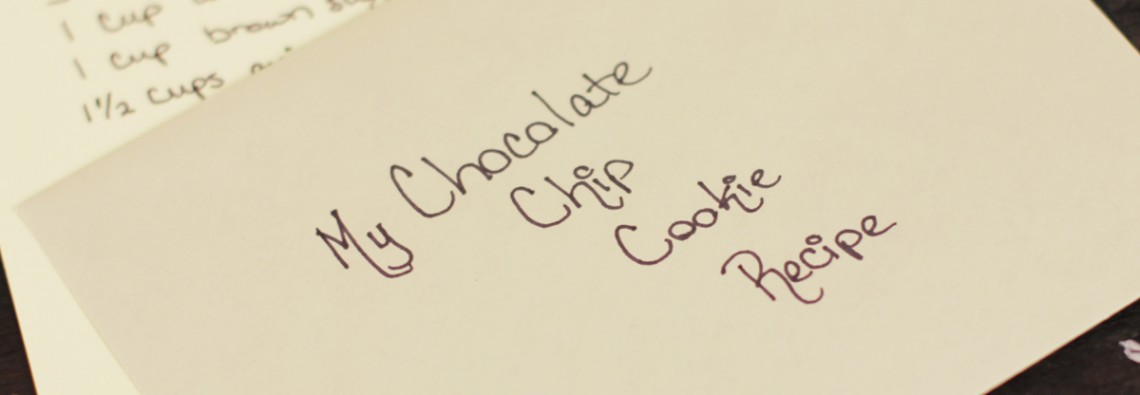 1 cup
1 cup brown
1 1/2 cups
My Chocolate
Chip
Cookie
Recipe